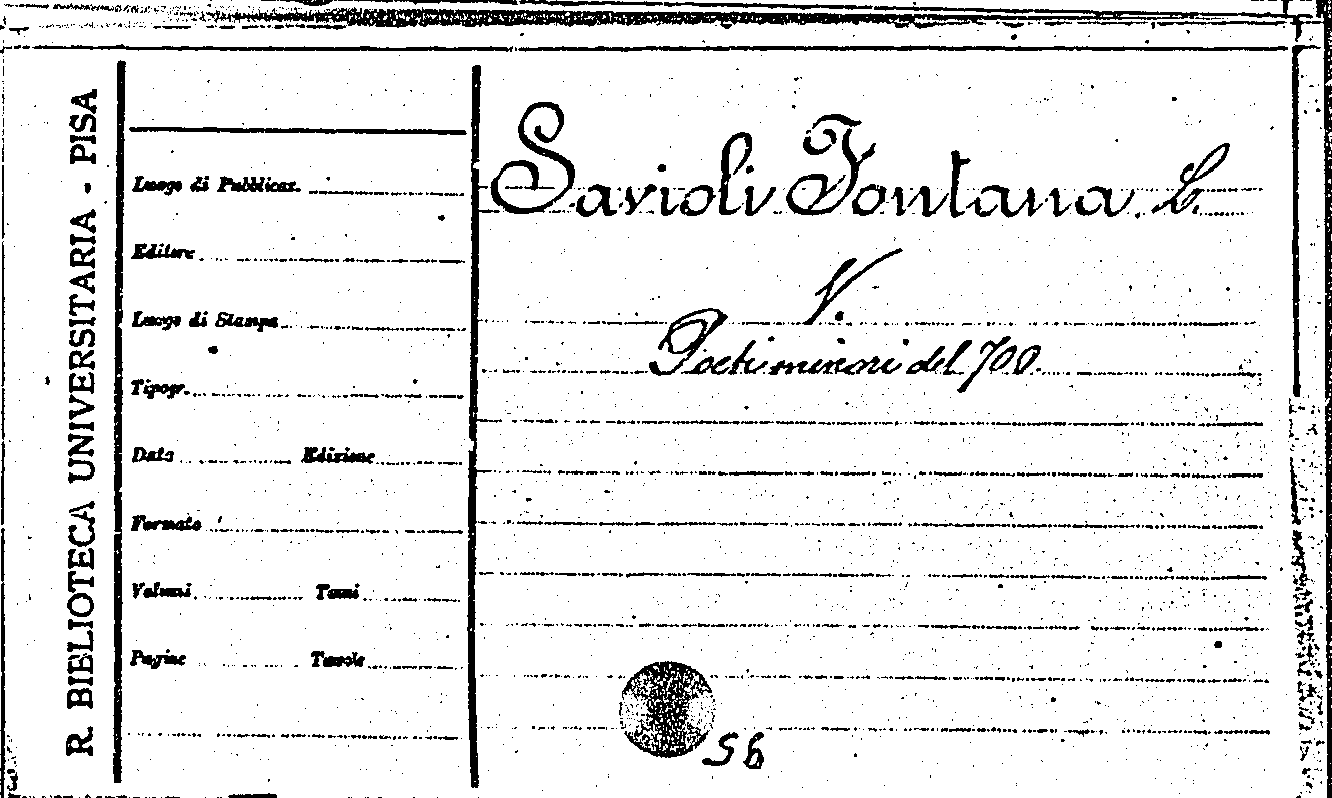 R. BIBLIOTECA UNIVERSITARIA - PISA
Luogo di Pubblicaz.
Editore
Luogo di Stampa
Tipogr.
Data Edizione
Formato
Volumi Tomi
Pagine Tavole
Savioli Fontana L.
V.
Poeti minori del 700.
56